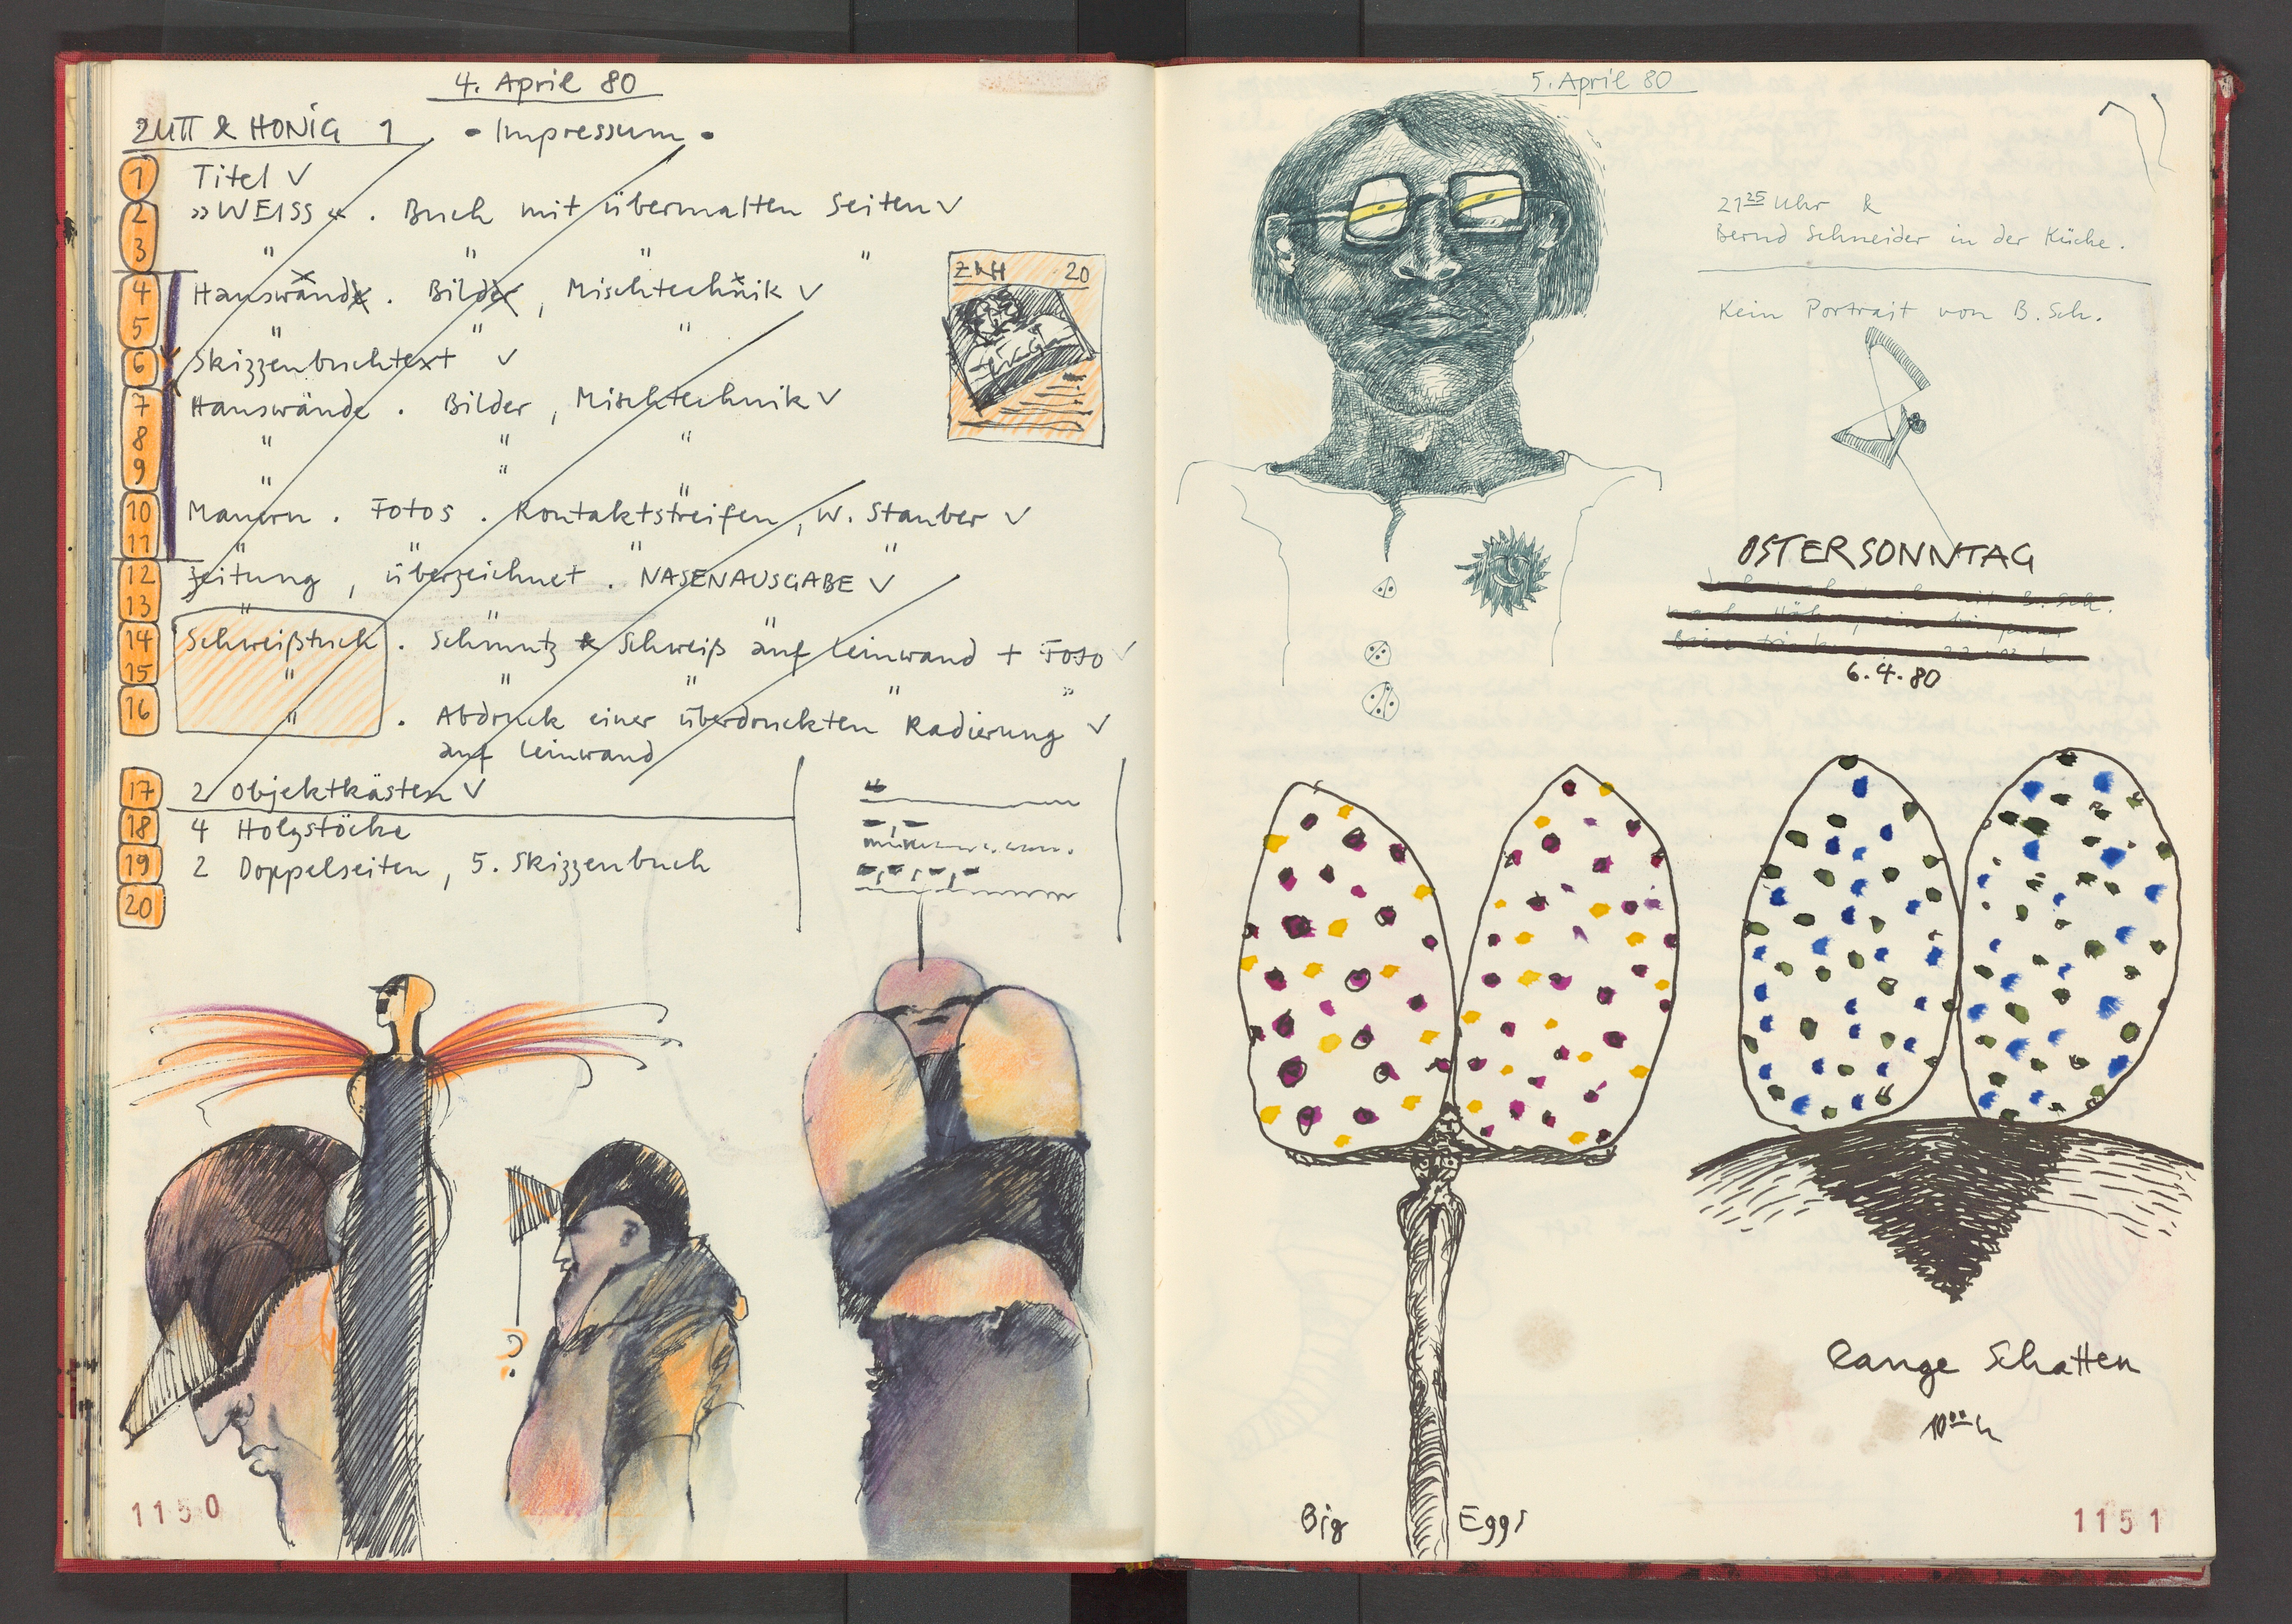 4. April 80
ZUTT & HONIG 1 • Impressum •
1 Titel ✓
2 »WEISS« . Buch mit übermalten Seiten ✓
3 " " " "
4 Hauswände . Bilder , Mischtechnik ✓
5 " " "
6 Skizzenbuchtext ✓
7 Hauswände . Bilder , Mischtechnik ✓
8 " " "
9 " "
10 Mauern . Fotos . Kontaktstreifen , W. Stauber ✓
11 " " " "
12 Zeitung , überzeichnet . NASENAUSGABE ✓
13 " " "
14 Schweißtuch . Schmutz & Schweiß auf Leinwand + Foto ✓
15 " " " " "
16 " . Abdruck einer überdruckten Radierung ✓
auf Leinwand
17 2 Objektkästen ✓
18 4 Holzstöcke
19 2 Doppelseiten , 5. Skizzenbuch
20
Z&H 20
?
1150
5. April 80
21 25 Uhr &
Bernd Schneider in der Küche.
Kein Portrait von B. Sch.
OSTERSONNTAG
6.4.80
Lange Schatten
10 00 h
Big Eggs
1151